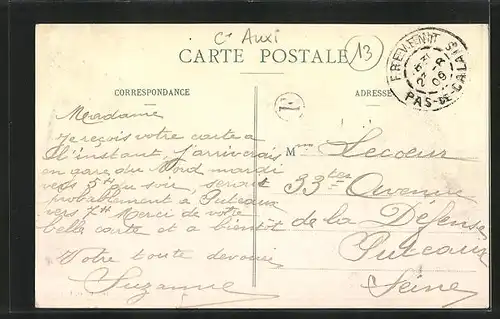 Cn Auxi
CARTE POSTALE
13
FREVENT
2-8
09
PAS-DE-CALAIS
CORRESPONDANCE
ADRESSE
Madame
Je reçois votre carte a
l'instant, j'arriverais
en gare du Nord mardi
vers 5h du soir, serais
probablement a Puteaux
vers 7h Merci de votre
belle carte et a bientôt
Votre toute dévouée
Suzanne
Mme Lecoeur
33ter Avenue
de la Défense
Puteaux
Seine